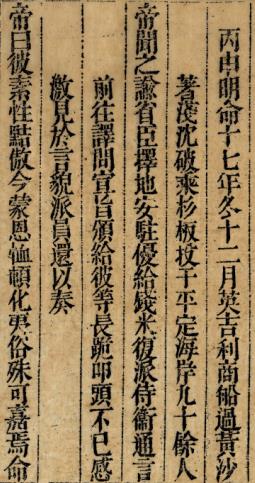 丙申明命十七年冬十二月英吉利商船過黃沙
著淺沈破乘杉板投于平定海岸九十餘人
帝聞之諭省臣擇地安駐優給錢米復派侍衛通言
前往譯問宣旨頒給彼等長跪叩頭不已感
激見於言貌派員還以奏
帝曰彼素性黠傲今蒙恩恤頓化夷俗殊可嘉焉命